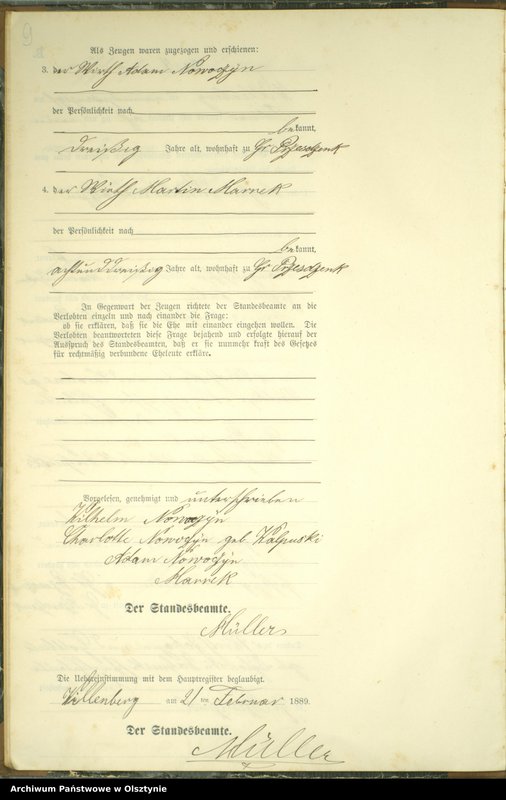 9
Als Zeugen waren zugezogen und erschienen:
3. der Wirth Adam Nowoczyn
der Persönlichkeit nach
bekannt,
dreißig Jahre alt, wohnhaft zu Gr Przesdzenk
4. der Wirth Martin Marrek
der Persönlichkeit nach
bekannt,
achtunddreißig Jahre alt, wohnhaft zu Gr Przesdzenk
In Gegenwart der Zeugen richtete der Standesbeamte an die
Verlobten einzeln und nach einander die Frage:
ob sie erklären, daß sie die Ehe mit einander eingehen wollen. Die
Verlobten beantworteten diese Frage bejahend und erfolgte hierauf der
Ausspruch des Standesbeamten, daß er sie nunmehr kraft des Gesetzes
für rechtmäßig verbundene Eheleute erkläre.
Vorgelesen, genehmigt und unterschrieben
Wilhelm Nowoczyn
Charlotte Nowoczyn geb. Kalpuski
Adam Nowoczyn
Marrek
Der Standesbeamte.
Müller
Die Uebereinstimmung mit dem Hauptregister beglaubigt.
Willenberg am 21ten Februar 1889.
Der Standesbeamte.
Müller
Archiwum Państwowe w Olsztynie